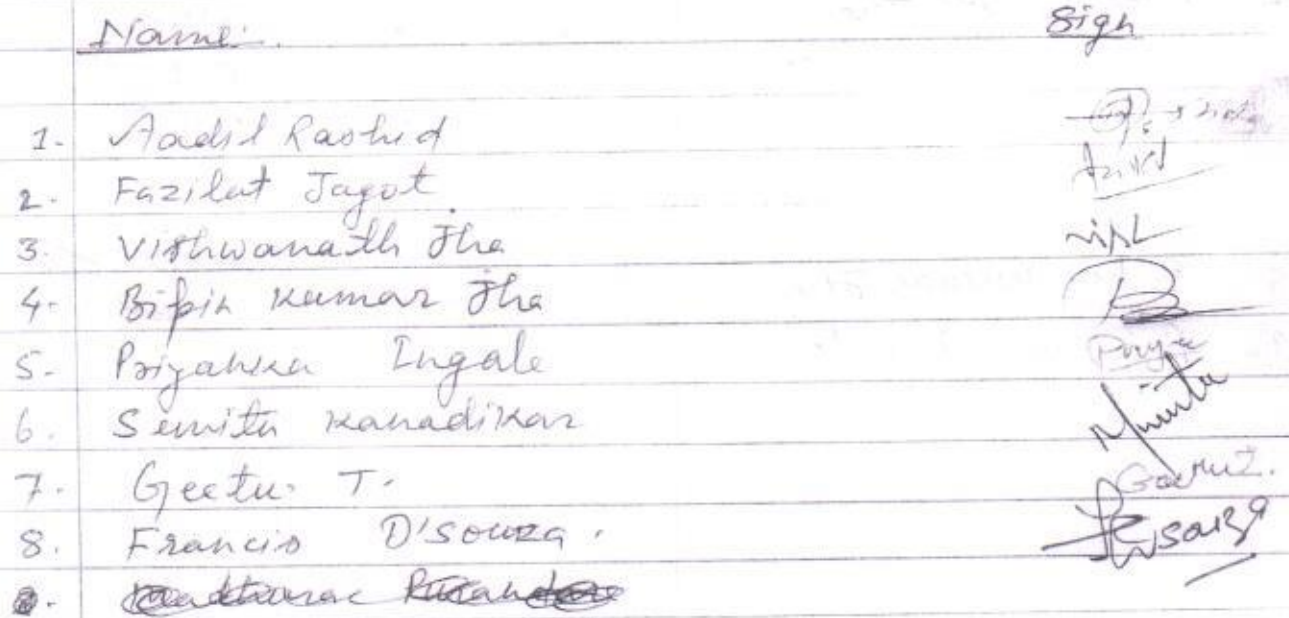 Name: Sign
1. Aadil Rashid
2. Fazilat Jagot
3. Vishwanath Jha
4. Bipin Kumar Jha
5. Priyanka Ingale Priya
6. Sunita Kanadikar
7. Geetu T.
8. Francis D'souza.